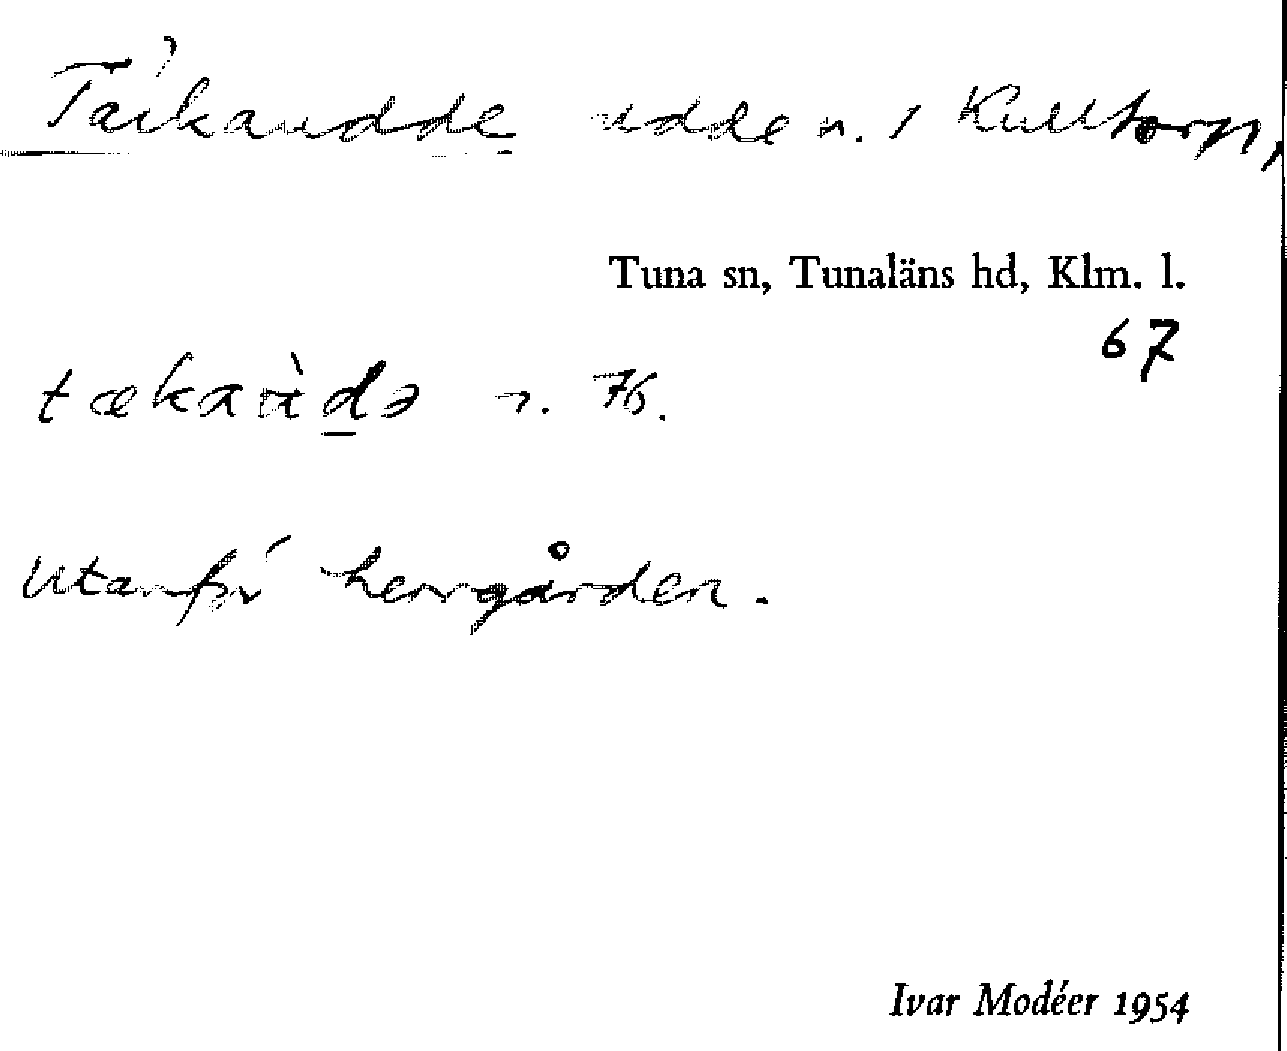 Täckaudde udde n. i Kulltorp,
Tuna sn, Tunaläns hd, Klm. l.
67
tækaùdə n. 76.
Utanför herrgården.
Ivar Modéer 1954